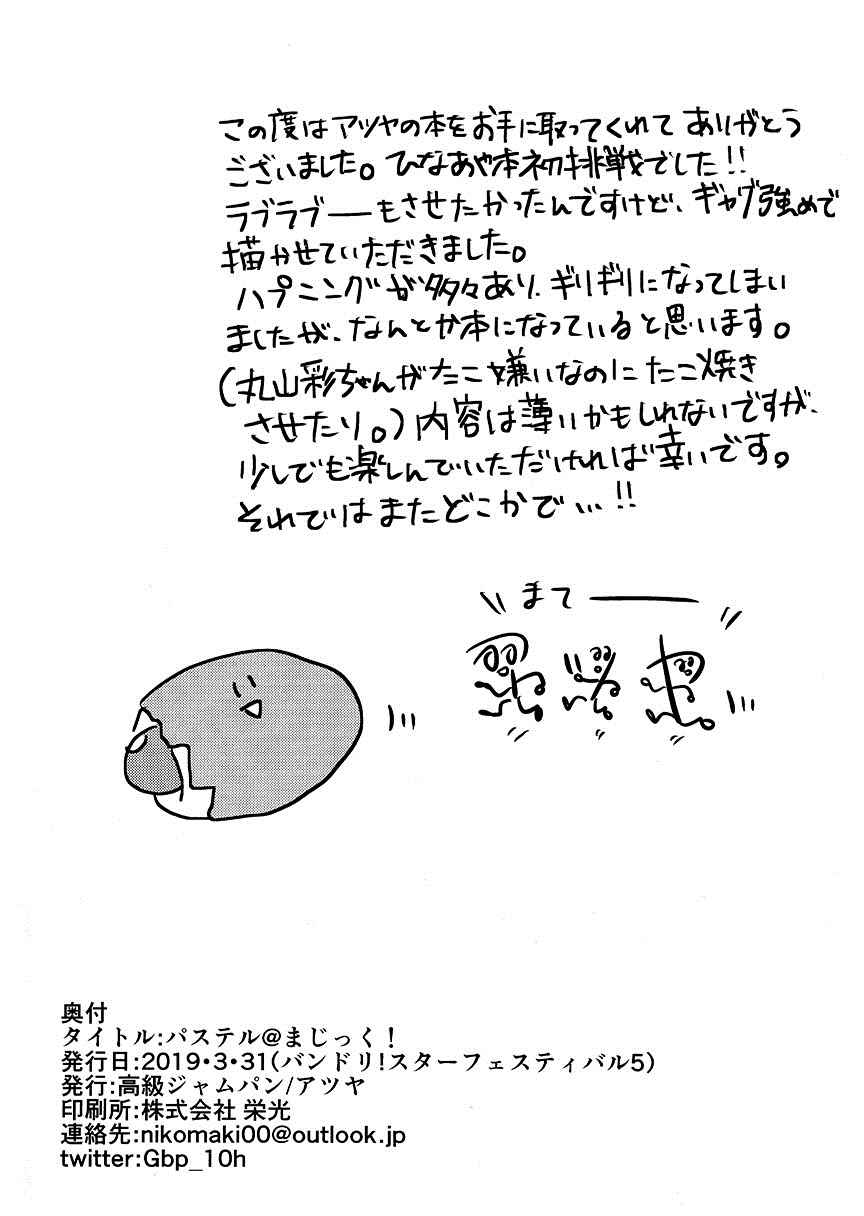 この度はアツヤの本をお手に取ってくれて ありがとう
ございました。ひなあや本初挑戦でした!!
ラブラブーーもさせたかったんですけど、ギャグ強めで
描かせていただきました。
ハプニングが多々あり、ギリギリになってしまい
ましたが、なんとか本になっていると思います。
(丸山彩ちゃんがたこ嫌いなのにたこ焼き
させたり。)内容は薄いかもしれないですが、
少しでも楽しんでいただければ幸いです。
それではまたどこかで...!!
まてーーー
奥付
タイトル:パステル@まじっく!
発行日:2019・3・31(バンドリ!スターフェスティバル5)
発行:高級ジャムパン/アツヤ
印刷所:株式会社 栄光
連絡先:nikomaki00@outlook.jp
twitter:Gbp_10h